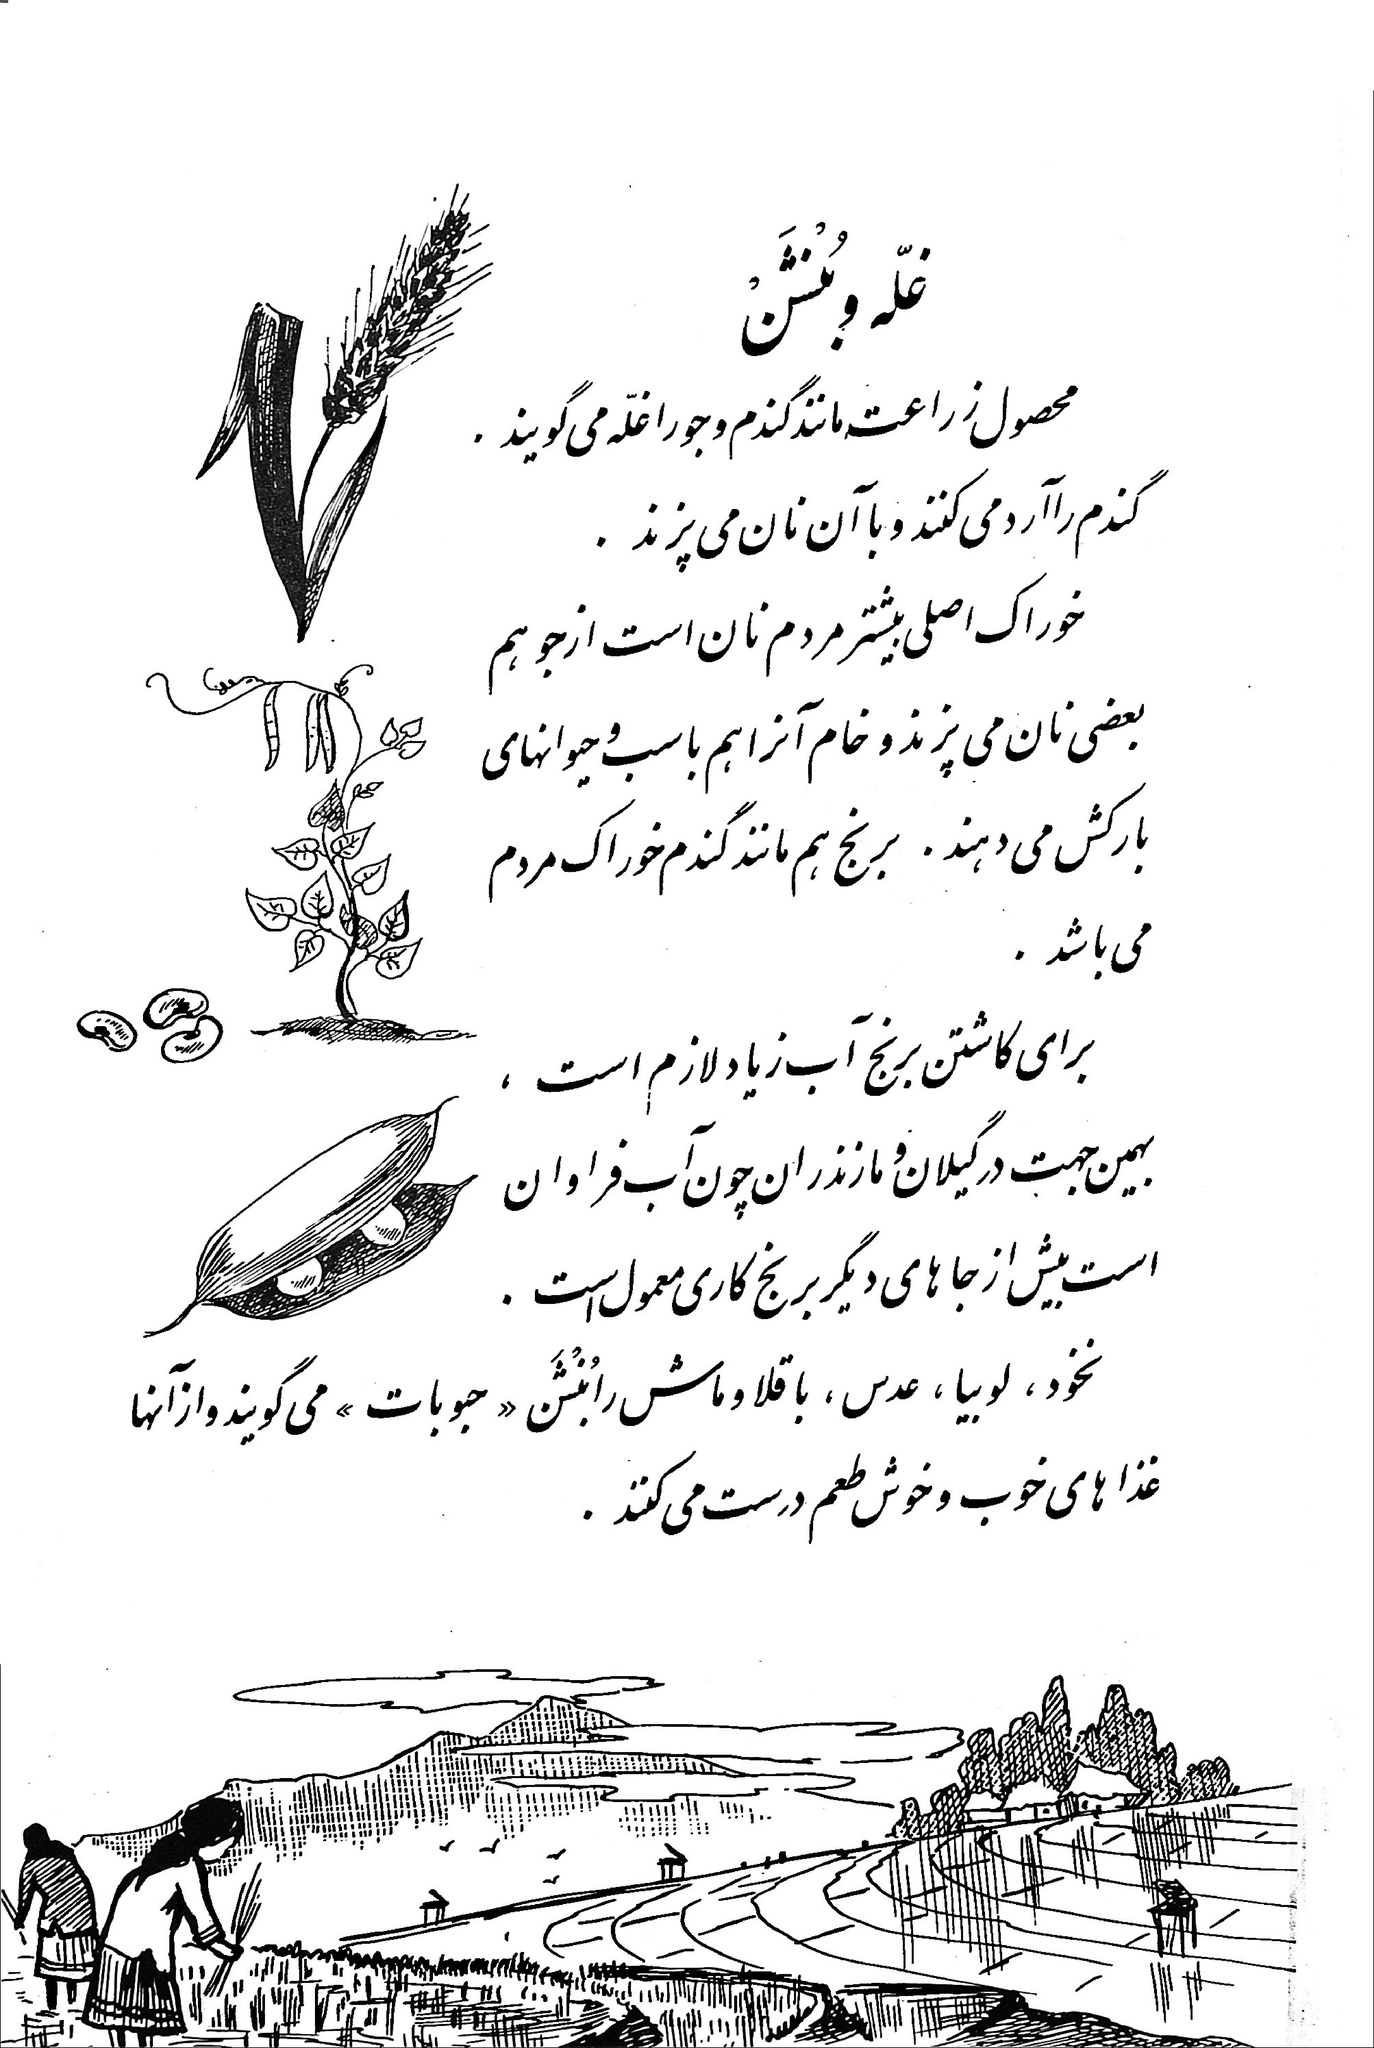 غلّه و بُنْشَنْ
محصول زراعت مانند گندم و جو را غلّه می گویند .
گندم را آرد می کنند و با آن نان می پزند .
خوراک اصلی بیشتر مردم نان است از جو هم
بعضی نان می پزند و خام آنرا هم باسب و حیوانهای
بارکش می دهند . برنج هم مانند گندم خوراک مردم
می باشد .
برای کاشتن برنج آب زیاد لازم است ،
بهمین جهت در گیلان و مازندران چون آب فراوان
است بیش از جا های دیگر برنج کاری معمول است .
نخود ، لوبیا ، عدس ، باقلا و ماش را بُنْشَن « حبوبات » می گویند و از آنها
غذا های خوب و خوش طعم درست می کنند .